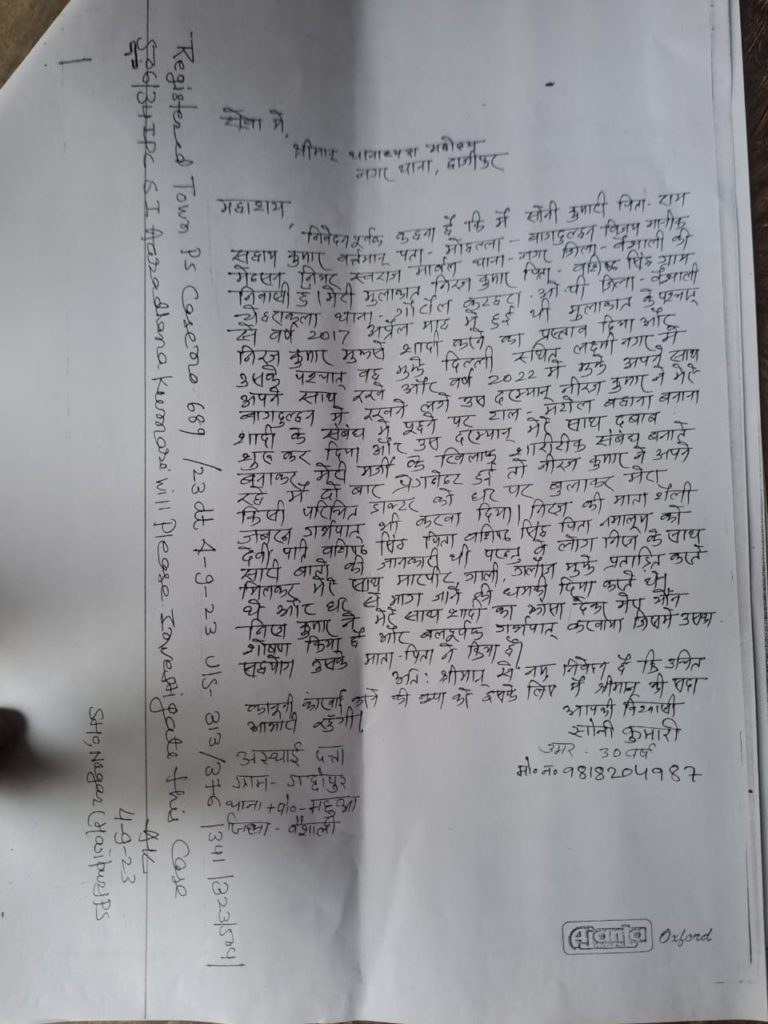 सेवा में,
श्रीमान् थानाध्यक्ष महोदय
नगर थाना, हाजीपुर
महाशय,
निवेदनपूर्वक कहना है कि मैं सोनी कुमारी पिता- राम
सहाय कुमार वर्तमान पता- मोहल्ला- बागदुल्हन विजय
निकट स्वराज थाना- नगर जिला- वैशाली की
निवासी हूँ। मेरी मुलाकात निरज कुमार पिता- वशिष्ठ सिंह ग्राम
थाना- ओ पी जिला- वैशाली
से वर्ष 2017 अप्रैल माह में हुई थी मुलाकात के पश्चात्
निरज कुमार मुझसे शादी करने का प्रस्ताव दिया और
उसके पश्चात् वह मुझे दिल्ली स्थित लक्ष्मी नगर में
अपने साथ रखने और वर्ष 2022 में मुझे अपने साथ
बागदुल्हन में रखने लगे उस दरम्यान् नीरज कुमार ने मेरे
शादी के संबंध में पूछने पर टाल- मटोल बहाना बनाना
शुरू कर दिया और उस दरम्यान् मेरे साथ दबाव
बनाकर मेरी मर्जी के खिलाफ शारीरीक संबंध बनाते
रहे मैं दो बार प्रेगनेंट हुई तो नीरज कुमार ने अपने
किसी परिचित डाक्टर को घर पर बुलाकर मेरा
जबरन गर्भपात् भी करवा दिया। निरज की माता शैली
देवी पति वशिष्ठ सिंह पिता वशिष्ठ सिंह पिता नमालूम को
सारी बातों की जानकारी थी परन्तु वे लोग निरज के साथ
मिलकर मेरे साथ मारपीट, गाली, गलौज मुझे प्रताड़ित करते
थे और घर से भाग जाने की धमकी दिया करते थे।
निरज कुमार ने मेरे साथ शादी का झांसा देकर मेरा यौन
शोषण किया है और बलपूर्वक गर्भपात् करवाया जिसमें उसका
सहयोग उसके माता-पिता ने किया है।
अतः श्रीमान् से नम्र निवेदन है कि उचित
कानूनी कारवाई करने की कृपा करें इसके लिए मैं श्रीमान् की सदा
आभारी रहूँगी।
आपकी विश्वासी
सोनी कुमारी
उमर- 30 वर्ष
मो०न० 9818204987
अस्थाई पता
ग्राम- गद्दोपुर
थाना + पो०- महुआ
जिला- वैशाली
Registered Town PS Case no 689/23 dt 4-9-23 U/S- 313/376/341/323/504/
506/34 IPC S.I Aaradhana Kumari will Please Investigate this Case
4-9-23
SHO, Nagar (Hajipur) PS
Ajanta Oxford